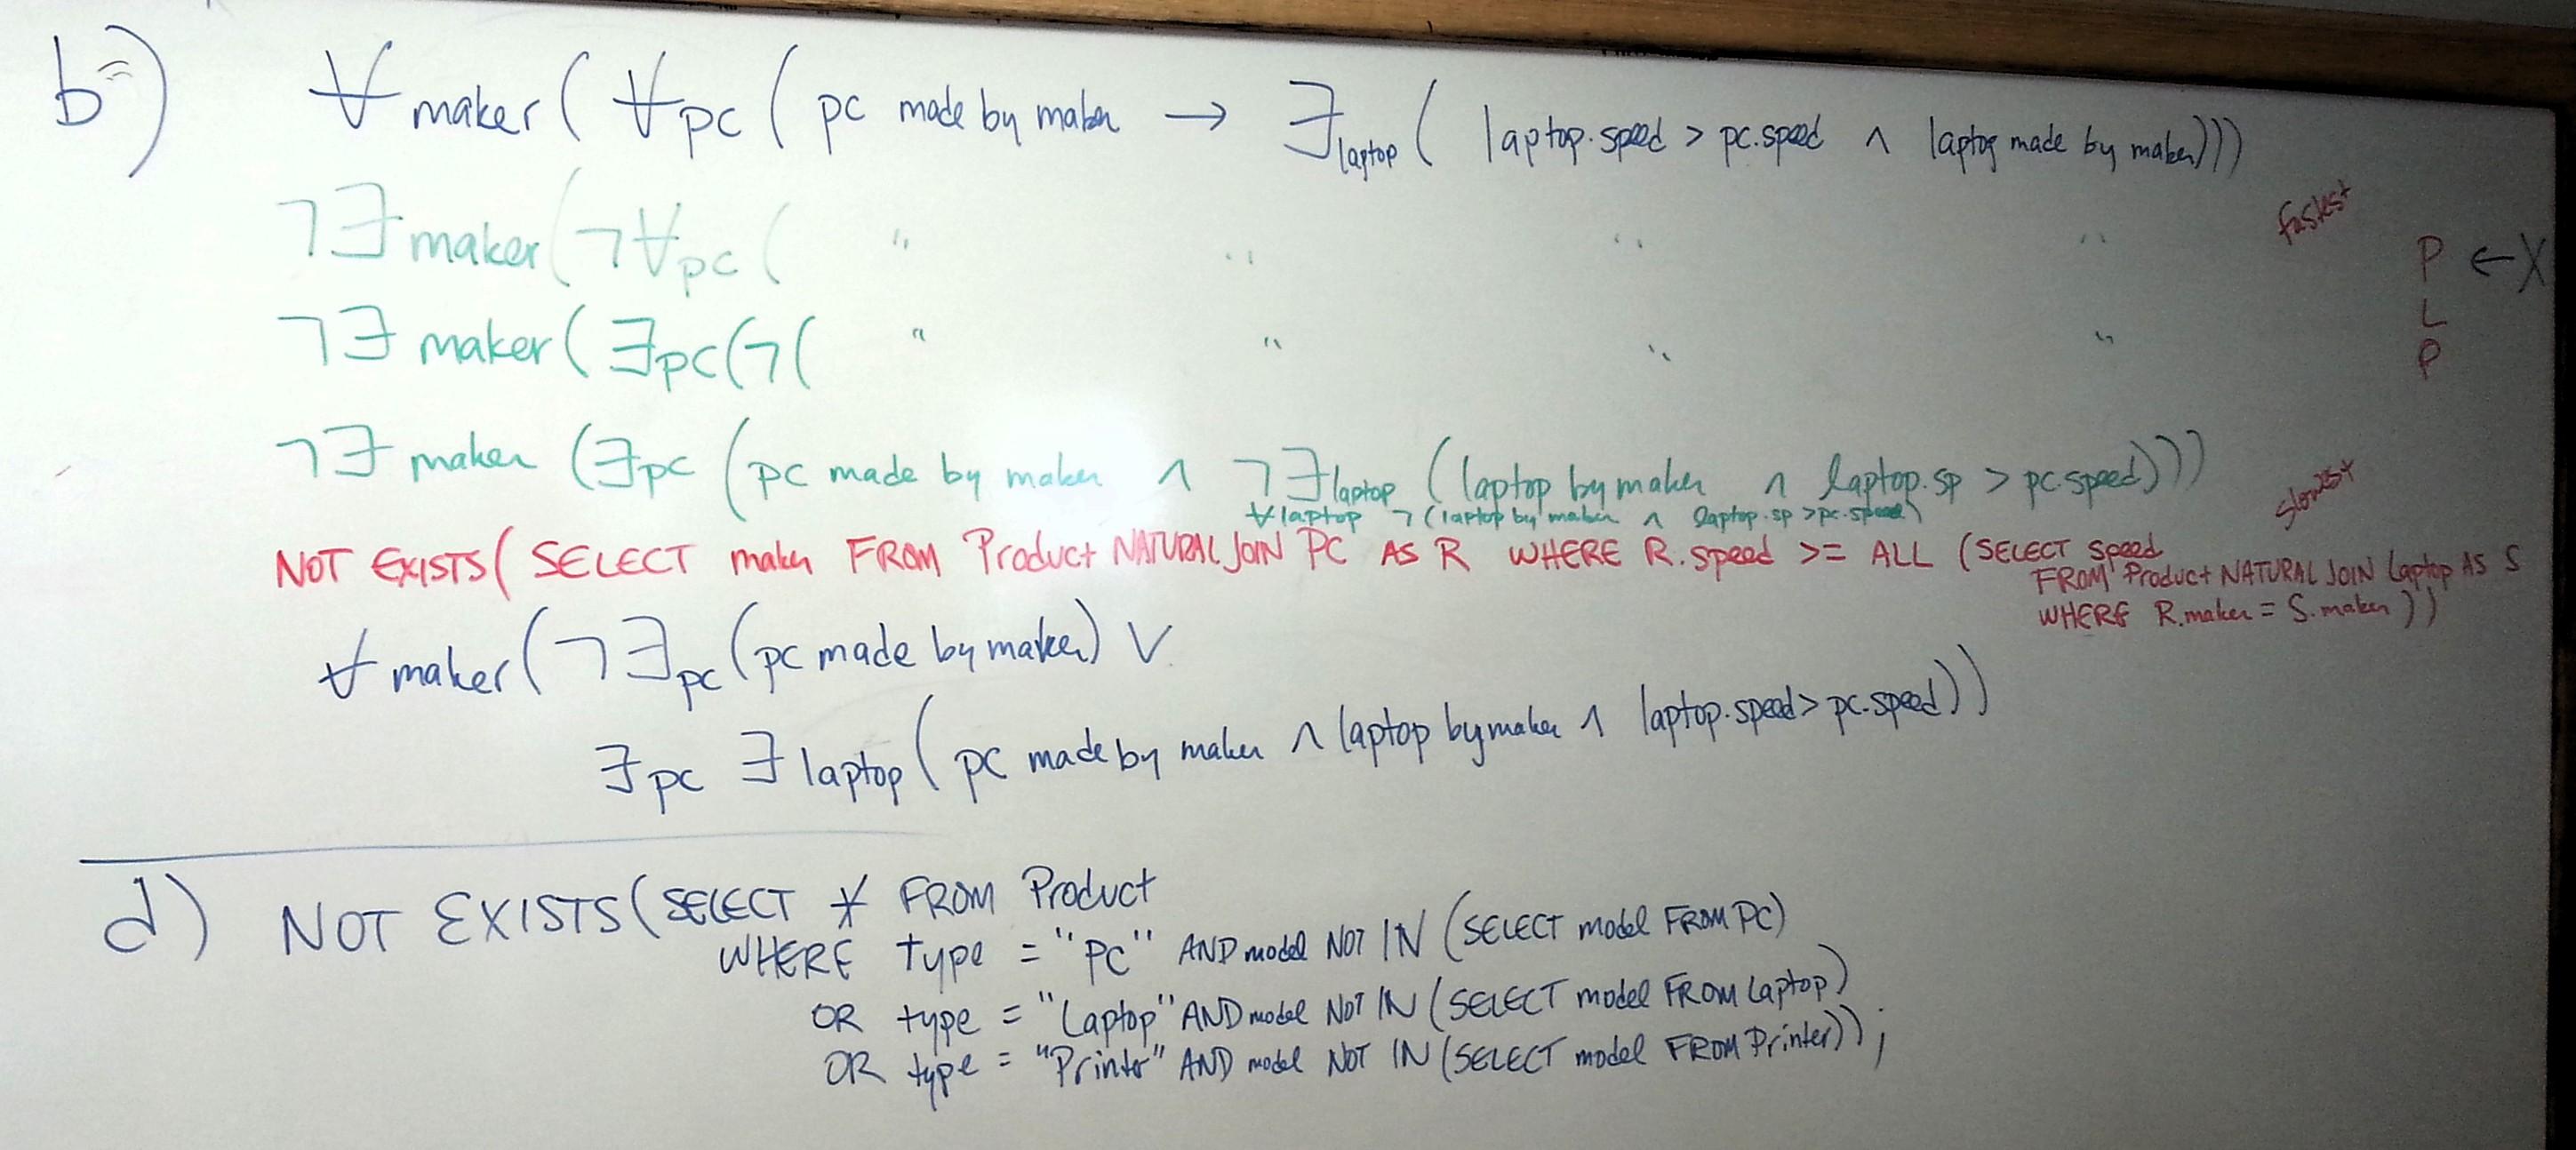 b) ∀maker(∀pc(pc made by maker → ∃laptop( laptop.speed > pc.speed ∧ laptop made by maker)))
¬∃maker(¬∀pc( " " " "
fastest
P ← X
L
P
¬∃ maker(∃pc(¬( " " " "
¬∃ maker (∃pc (pc made by maker ∧ ¬∃laptop (laptop by maker ∧ laptop.sp > pc.speed)))
∀laptop ¬(laptop by maker ∧ laptop.sp > pc.speed)
slowest
NOT EXISTS( SELECT maker FROM Product NATURAL JOIN PC AS R WHERE R.speed >= ALL (SELECT speed
FROM Product NATURAL JOIN Laptop AS S
WHERE R.maker = S.maker ))
∀maker(¬∃pc(pc made by maker) ∨
∃pc ∃laptop( pc made by maker ∧ laptop by maker ∧ laptop.speed > pc.speed))
d) NOT EXISTS(SELECT * FROM Product
WHERE type = "PC" AND model NOT IN (SELECT model FROM PC)
OR type = "Laptop" AND model NOT IN (SELECT model FROM Laptop)
OR type = "Printer" AND model NOT IN (SELECT model FROM Printer));